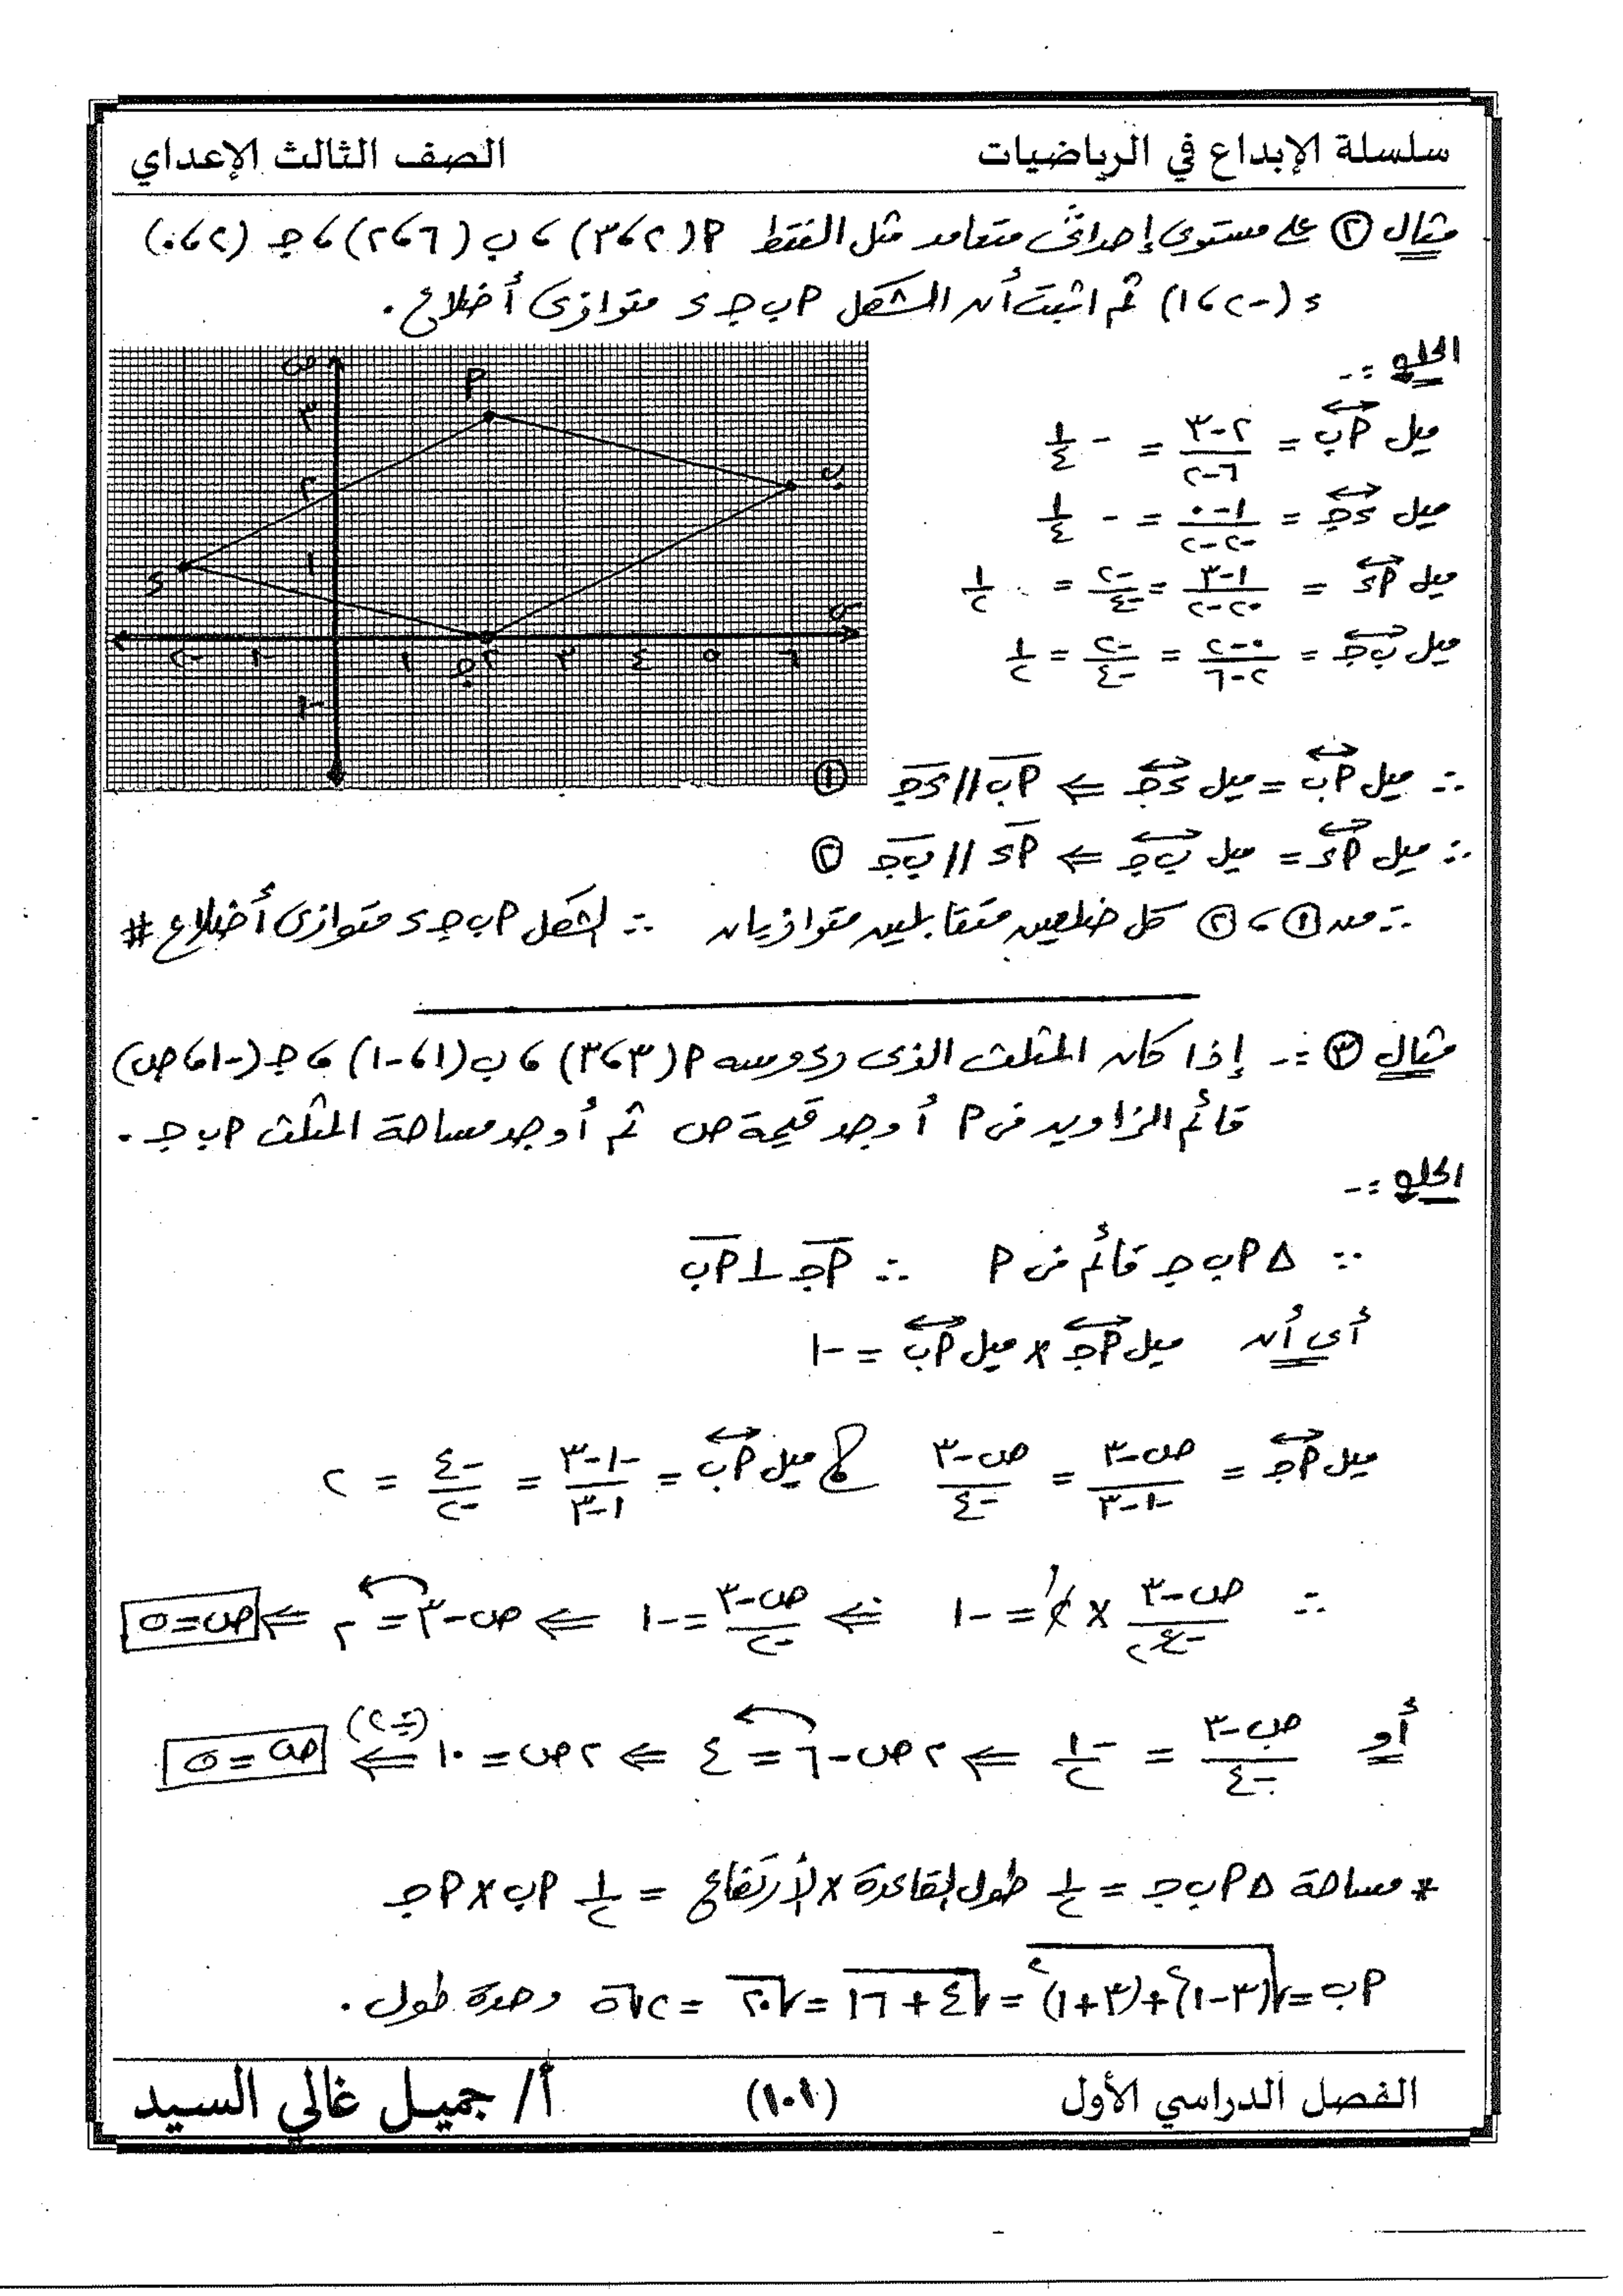 سلسلة الإبداع في الرياضيات
الصف الثالث الإعداي
مثال ② على مستوى إحداثى متعامد مثل النقط P (٢، ٣)، ب (٦، ٢)، جـ (٢، ٠)
د (-٢، ١) ثم اثبت أن الشكل P ب جـ د متوازى أضلاع .
الحل :-
ميل Pب = (٢-٣)/(٦-٢) = -١/٤
ميل دجـ = (١-٠)/(-٢-٢) = -١/٤
ميل Pد = (١-٣)/(-٢-٢) = -٢/-٤ = ١/٢
ميل بجـ = (٠-٢)/(٢-٦) = -٢/-٤ = ١/٢
ص
٣
٢
١
-١
P
ب
د
جـ
س
-٢ -١ ١ ٢ ٣ ٤ ٥ ٦
∴ ميل Pب = ميل دجـ ⇐ Pب // دجـ ①
∴ ميل Pد = ميل بجـ ⇐ Pد // بجـ ②
∴ من ①، ② كل ضلعين متقابلين متوازيان ∴ الشكل P ب جـ د متوازى أضلاع #
مثال ③ :- إذا كان المثلث الذى رءوسه P (٣، ٣)، ب (١، -١)، جـ (-١، ص)
قائم الزاويه فى P أوجد قيمة ص ثم أوجد مساحة المثلث P ب جـ .
الحل :-
∵ Δ P ب جـ قائم فى P ∴ Pجـ ⊥ Pب
أى أن ميل Pجـ × ميل Pب = -١
ميل Pجـ = (ص-٣)/(-١-٣) = (ص-٣)/-٤ ، ميل Pب = (-١-٣)/(١-٣) = -٤/-٢ = ٢
∴ (ص-٣)/-٤ × ٢ = -١ ⇐ (ص-٣)/-٢ = -١ ⇐ ص-٣ = ٢ ⇐ ص = ٥
أو (ص-٣)/-٤ = -١/٢ ⇐ ٢ص-٦ = ٤ ⇐ ٢ص = ١٠ ⇐ (÷٢) ص = ٥
* مساحة Δ P ب جـ = ١/٢ طول القاعدة × الأرتفاع = ١/٢ Pب × Pجـ
Pب = √((٣-١)²+(٣+١)²) = √(٤+١٦) = √٢٠ = ٢√٥ وحدة طول .
الفصل الدراسي الأول
(١٠١)
أ/ جميل غالي السيد